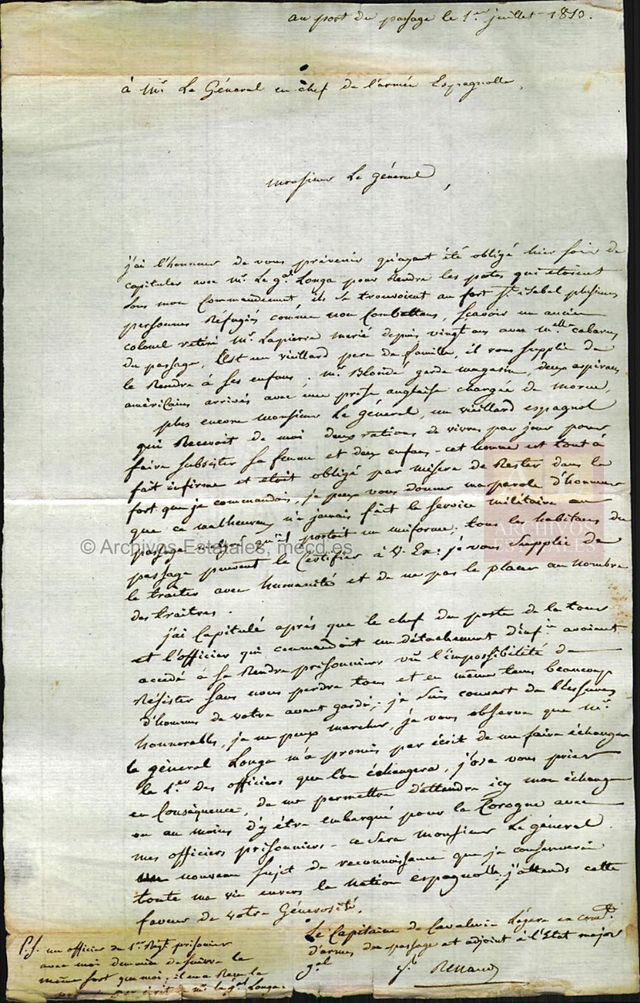 au port du passage le 1er juillet 1813.
à Mr Le Général en chef de l'armée Espagnolle,
Monsieur Le général,
j'ai l'honneur de vous prévenir qu'ayant été obligé hier soir de
capituler avec Mr Le gal Longa pour Rendre les postes qui étoient
sous mon Commandement, ils se trouvoient au fort Ste isabel plusieurs
personnes Refugiés comme non Combattans, scavoir un ancien
colonel retiré Mr Lapierre marié depuis vingt ans avec Melle cabarus
du passage, C'est un vieillard pere de famille, il vous supplie de
le Rendre à ses enfans; Mr Blondé garde magasin, deux aspirans
américains arrivés avec une prise anglaise chargée de morue,
plus encore monsieur Le général, un vieillard espagnol
qui Recevoit de moi deux rations de vivres par jour pour
faire subsister sa femme et deux enfans. cet homme est tout à
fait infirme et etoit obligé par misere de Rester dans le
fort que je commandois, je peux vous donner ma parole d'honneur
que ce malheureux n'a jamais fait le service militaire au
passage, ni portoit un uniforme, tous les habitans du
passage peuvent le Certifier à V. Ex. je vous supplie de
le traiter avec humanité et de ne pas le placer au nombre
des traitres.
j'ai Capitulé après que le chef du poste de la tour
et l'officier qui commandoit un détachement d'infie avoient
accédé à se Rendre prisonniers vû l'impossibilité de
Résister sans nous perdre tous et en même tems beaucoup
d'hommes de votre avant garde; je suis couvert de blessures
honnorables, je ne peux marcher, je vous observe que Mr
le général Longa m'a promis par écrit de me faire échanger
le 1er des officiers que l'on échangera, j'ose vous prier
en Conséquence, de me permettre d'attendre icy mon échange
ou au moins d'y être embarqué pour la Corogne avec
mes officiers prisonniers. ce sera monsieur Le général
un nouveau sujet de reconnoissance que je conserverai
toute ma vie envers la nation espagnolle, j'attends cette
faveur de votre Générosité.
Le Capitaine de Cavalerie Légere en comdt
d'armes du passage et adjoint à l'Etat major
gal
Renaud
P.S. un officier du 1er Regt prisonnier
avec moi demande de suivre le
même sort que moi, il en a Reçu la
par écrit de Mr le gal Longa.
© Archivos Estatales, mecd.es
ARCHIVOS
ESTATALES